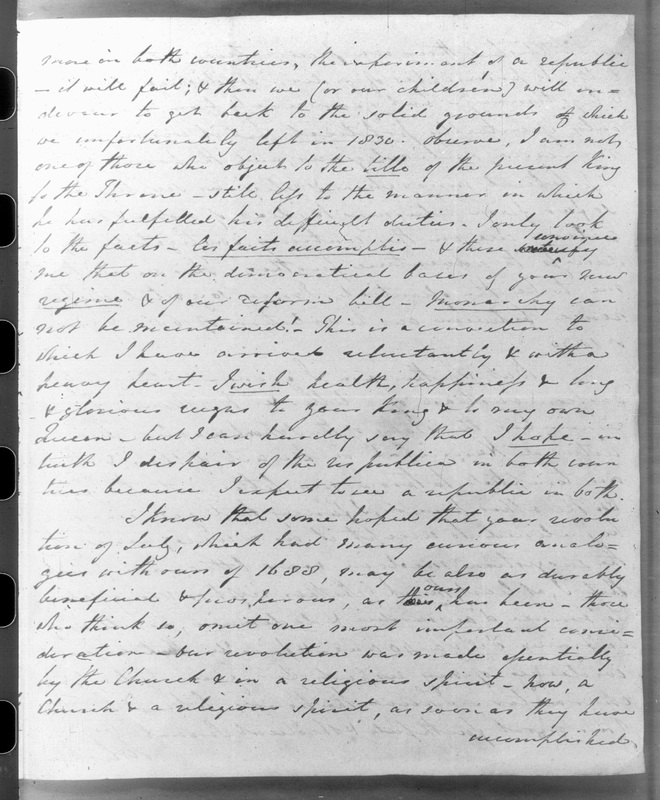 more in both countries, the experiment of a republic
– it will fail; & then we (or our children) will en=
devour to get back to the solid grounds of which
we unfortunately left in 1830. Observe, I am not
one of those who object to the title of the present King
to the Throne – still less to the manner in which
he has fulfilled his difficult duties – I only look
to the facts – les faits accomplis – & these convince
me that on the democratical bases of your new
regime & of our reform bill – Monarchy can
not be maintained! – This is a conviction to
which I have arrived reluctantly & with a
heavy heart – I wish health, happiness & long
& glorious reigns to your King & to my own
Queen – but I can hardly say that I hope – in
truth I despair of the respublica in both coun
tries because I expect to see a republic in both.
I know that some hoped that your revolu
tion of July, which had many curious analo=
gies with ours of 1688, may be also as durably
beneficial & prosperous, as ours has been – those
who think so, omit one most important consi=
deration – our revolution was made essentially
by the Church & in a religious spirit – now, a
Church & a religious spirit, as soon as they have
accomplished